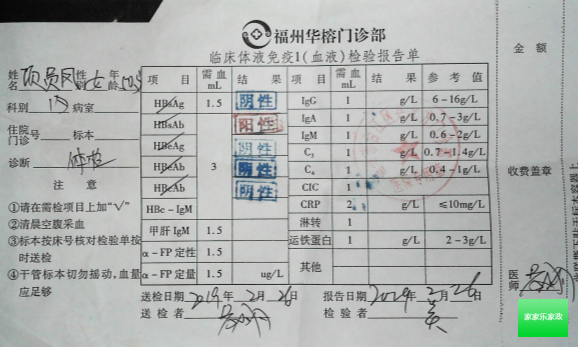 福州华榕门诊部
临床体液免疫1(血液)检验报告单
姓名 项员凤 性别 女 年龄 50岁
科别 内 病室
住院门诊 号 标本
诊断 体检
注 意
①请在需检项目上加“√”
②请晨空腹采血
③标本按床号核对检验单按时送检
④干管标本切勿摇动,血量应足够
项 目 需血mL 结 果 项 目 需血mL 结 果 参 考 值
HBsAg 1.5 阴性 IgG 1 g/L 6-16g/L
HBsAb 3 阳性 IgA 1 g/L 0.7-3g/L
HBeAg 阴性 IgM 1 g/L 0.6-2g/L
HBeAb 阴性 C₃ 1 g/L 0.7-1.4g/L
HBcAb 阴性 C₄ 1 g/L 0.4-1g/L
CIC 1
HBc-IgM CRP 2 g/L ≤10mg/L
甲肝IgM 1.5 淋转 1
α-FP定性 1.5 运铁蛋白 1 g/L 2-3g/L
α-FP定量 1.5 ug/L 其他
送检日期 2019年2月26日 报告日期 2019年2月26日
送检者 检验者
金 额
收费盖章
医师
家家乐家政